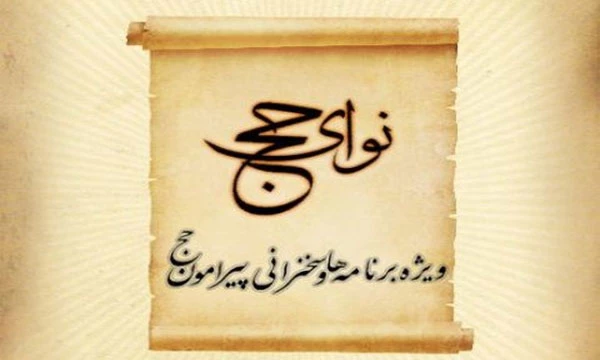 نوای حج
ویژه برنامه ها و سخنرانی پیرامون حج